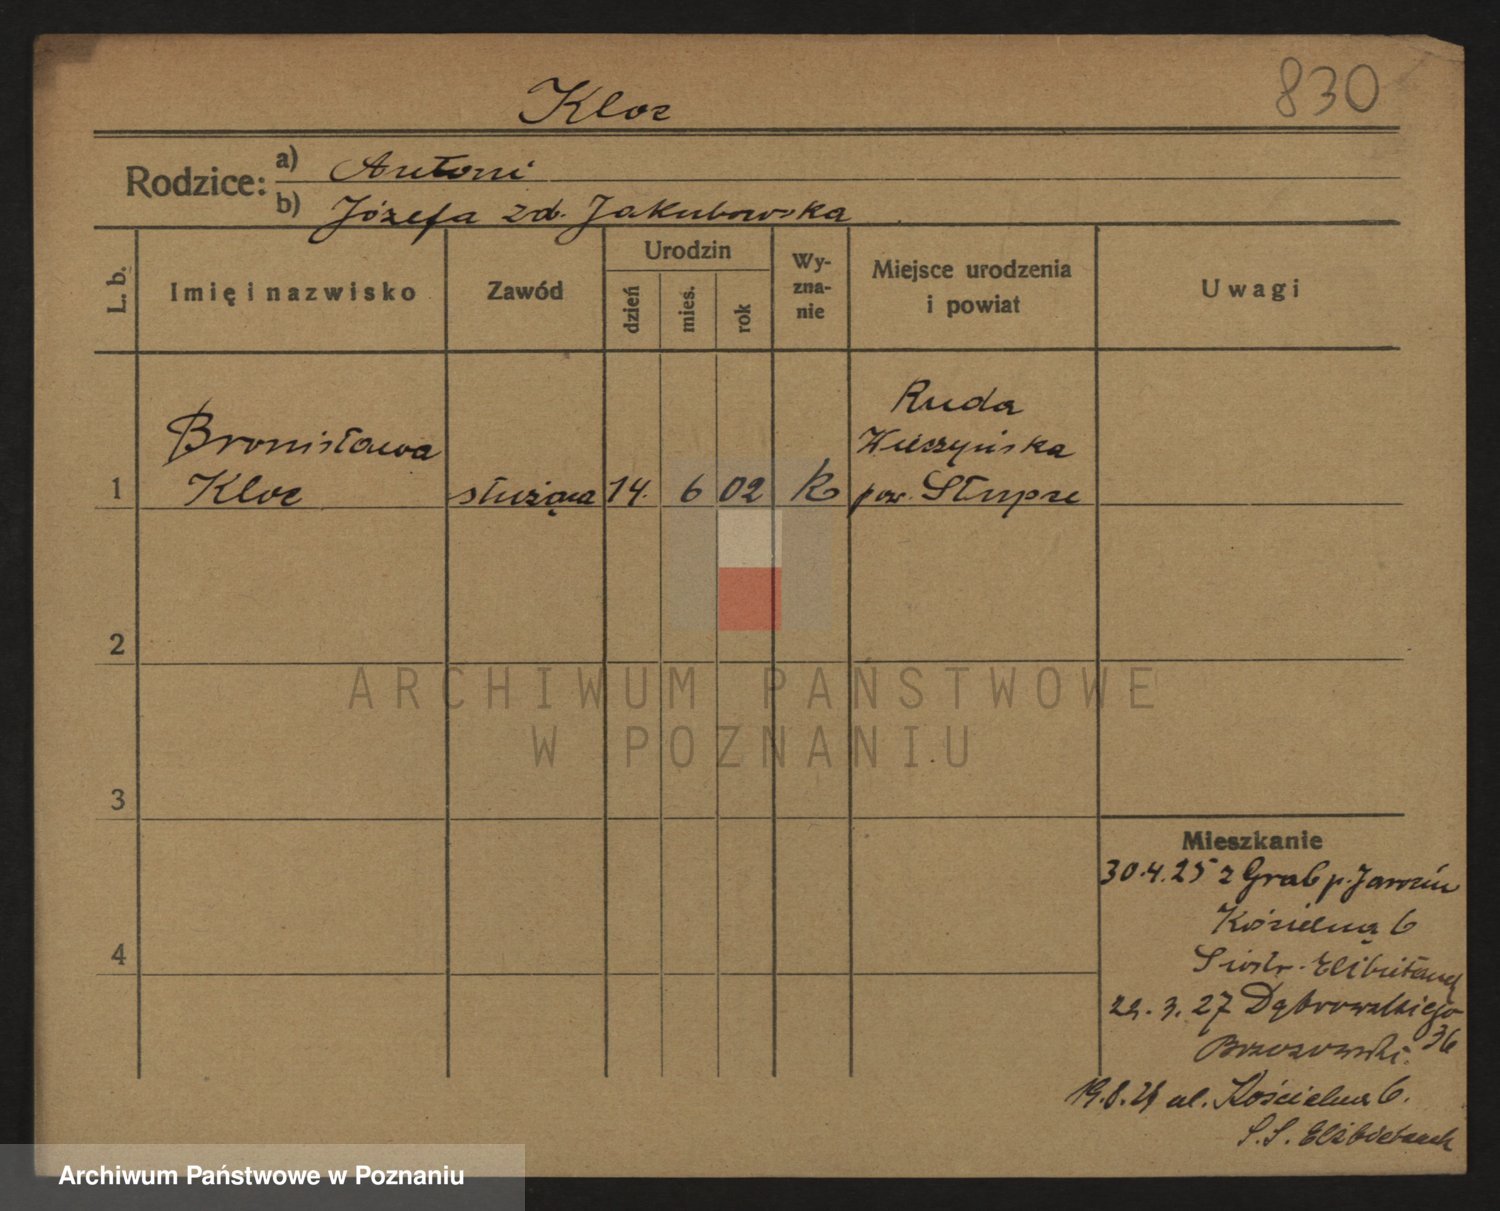 830
Kloc
Rodzice: a) Antoni
b) Józefa zd. Jakubowska
L. b. Imię i nazwisko Zawód Urodzin dzień mies. rok Wyznanie Miejsce urodzenia i powiat Uwagi
1 Bronisława Kloc służąca 14. 6 02 k Ruda pow. Słupze
2
3
4
Mieszkanie
30.4.25 z Grab p. Jarocin
Kościelna 6
Siostr.
3. 27 Dąbrowskiego 36
Brzozowski.
ul. Kościelna 6.
S.S.
ARCHIWUM PAŃSTWOWE
W POZNANIU
Archiwum Państwowe w Poznaniu